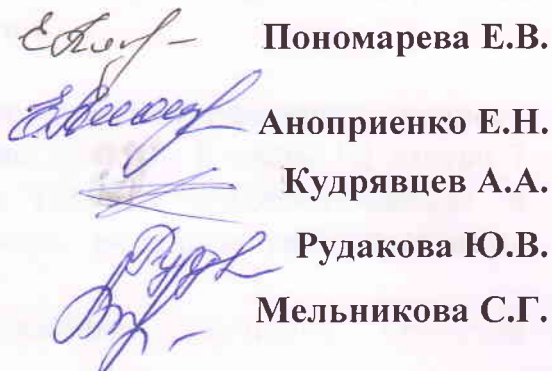 Пономарева Е.В.
Аноприенко Е.Н.
Кудрявцев А.А.
Рудакова Ю.В.
Мельникова С.Г.